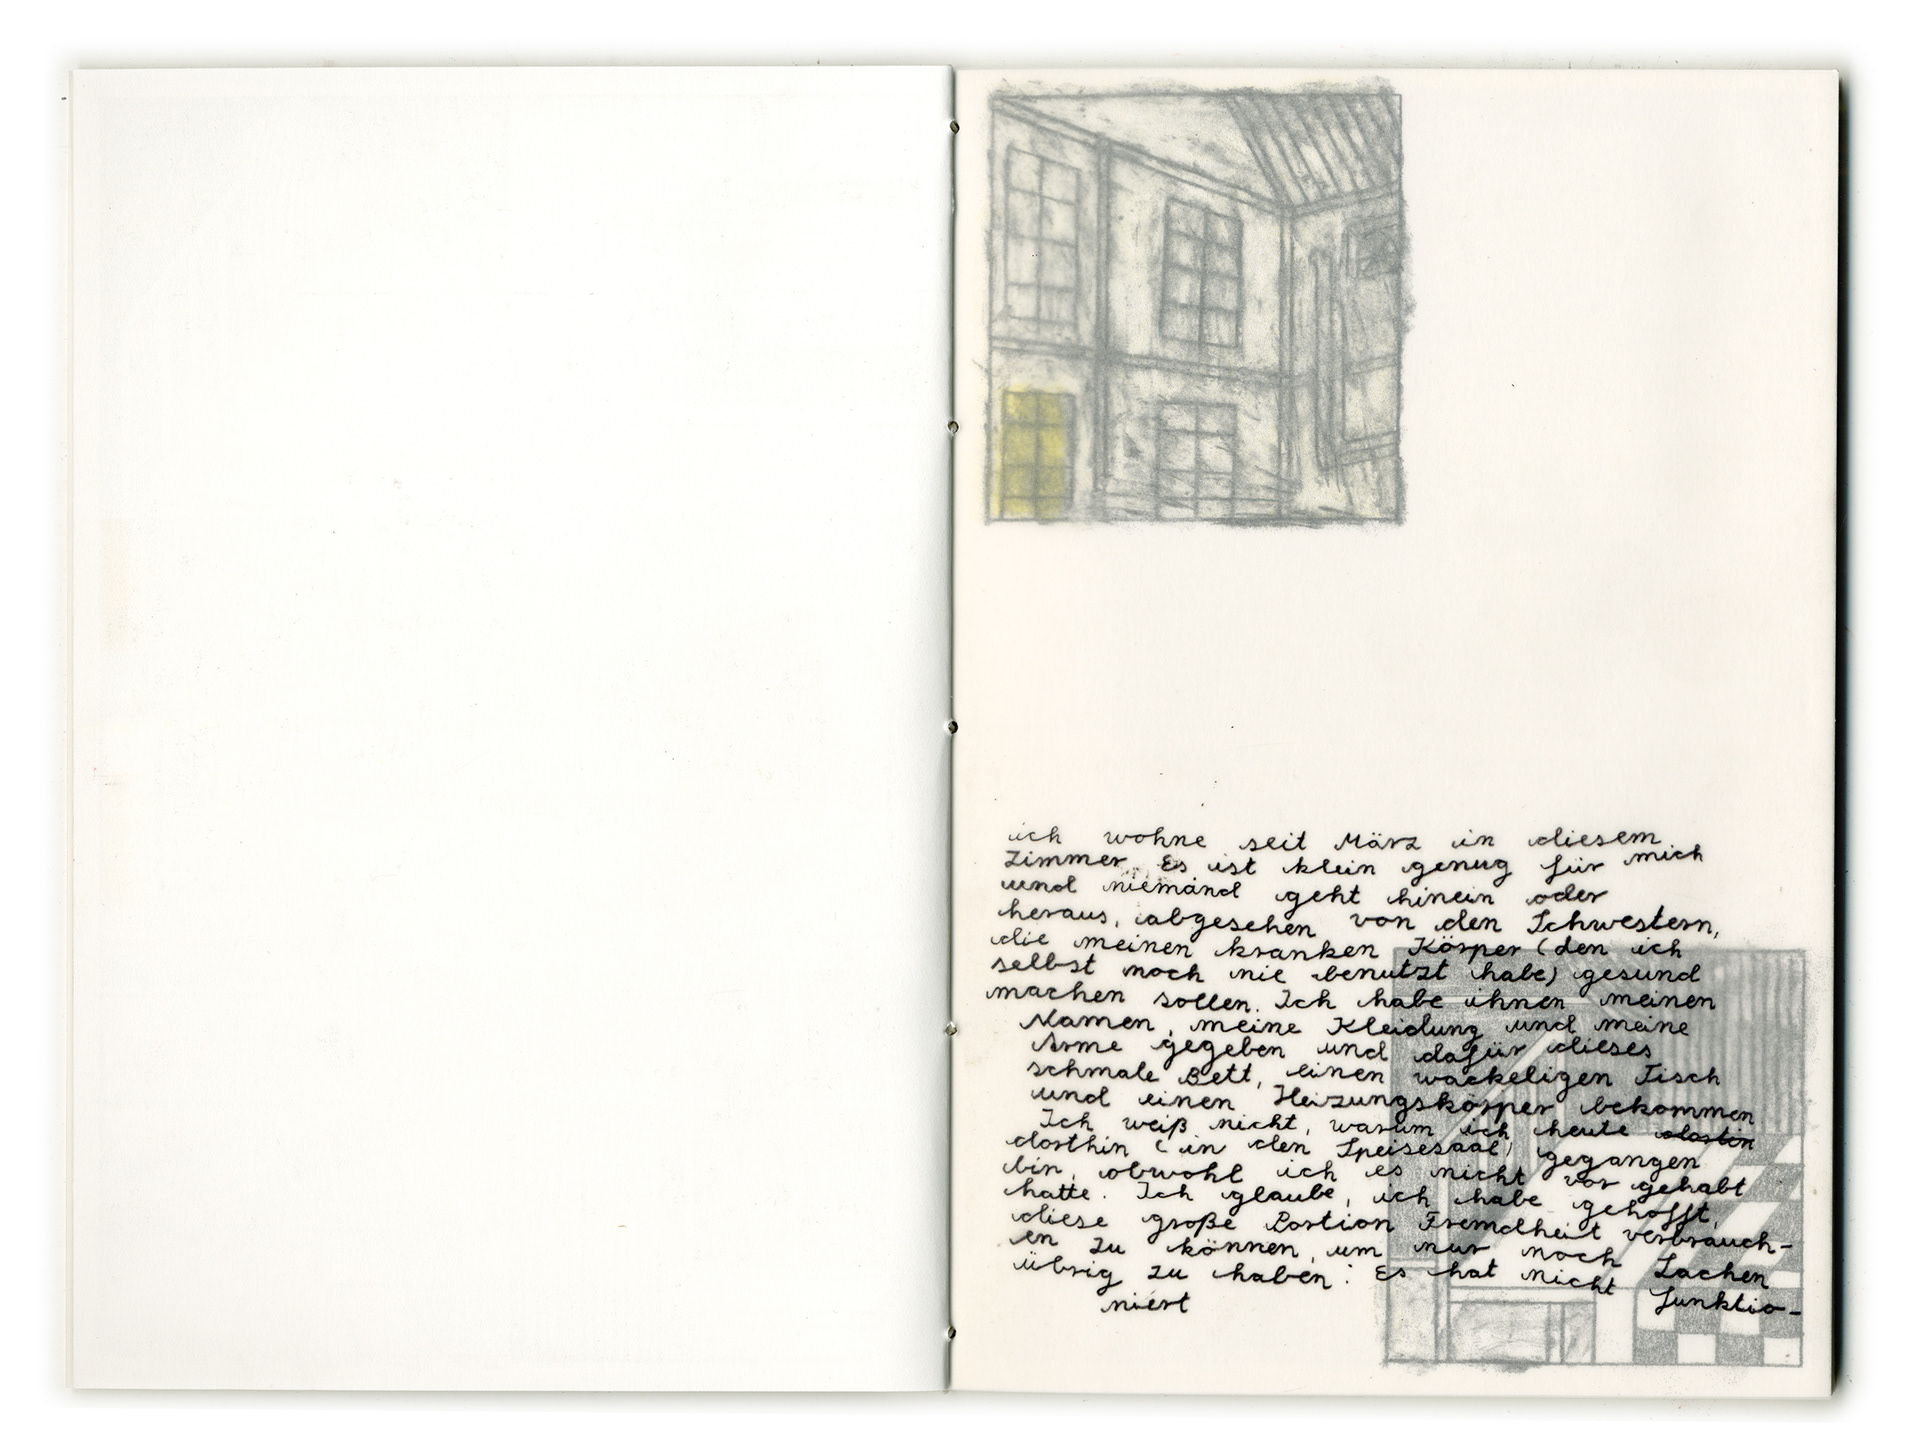 ich wohne seit März in diesem
Zimmer. Es ist klein genug für mich
und niemand geht hinein oder
heraus, abgesehen von den Schwestern,
die meinen kranken Körper (den ich
selbst noch nie benutzt habe) gesund
machen sollen. Ich habe ihnen meinen
Namen, meine Kleidung und meine
Arme gegeben und dafür dieses
schmale Bett, einen wackeligen Tisch
und einen Heizungskörper bekommen
Ich weiß nicht, warum ich heute
dorthin (in den Speisesaal) gegangen
bin, obwohl ich es nicht vor gehabt
hatte. Ich glaube, ich habe gehofft,
diese große Portion Fremdheit verbrauch-
en zu können, um nur noch Lachen
übrig zu haben: Es hat nicht funktio-
niert